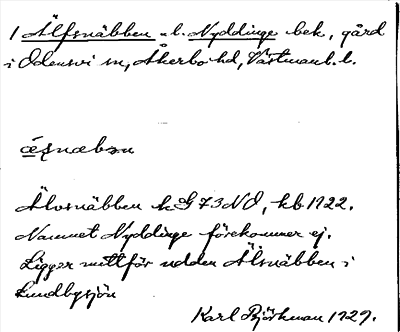 1 Älfsnäbben el. Nyddinge bek, gård
i Odensvi sn, Åkerbo hd, Västmanl. l.
ä̀ʂnæbən
Älvsnäbben k. G 73 NO, kb 1922.
Namnet Nyddinge förekommer ej.
Ligger mittför udden Älsnäbben i
Lundbysjön
Karl Björkman 1929.